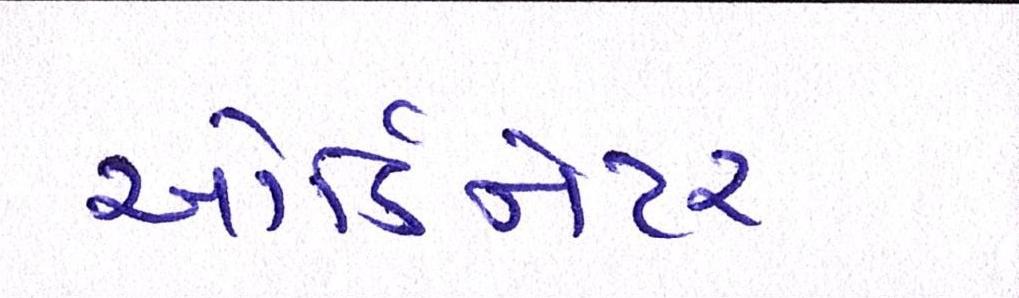 ઓર્ડિનેટર